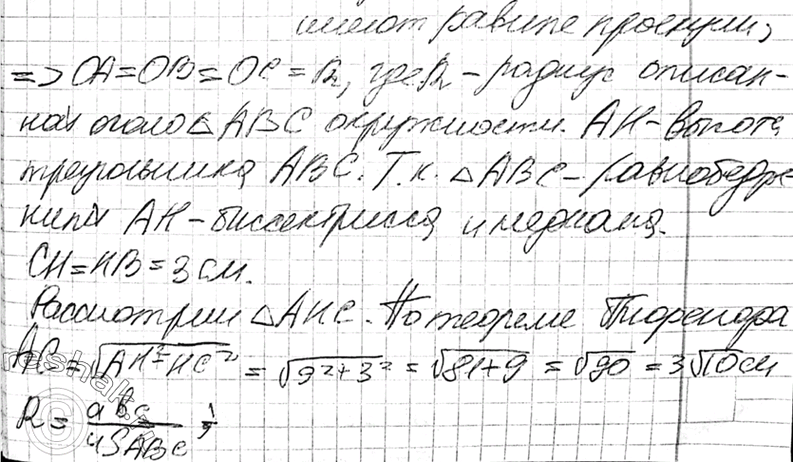 имеют равные проекции,
=> OA=OB=OC=R, где R - радиус описан-
ной около △ABC окружности. AH - высота
треугольника ABC. Т.к. △ABC - равнобедре
нный AH - биссектриса и медиана.
CH=HB=3 см.
Рассмотрим △AHC. По теореме Пифагора
AC=√AH²+HC² = √9²+3² = √81+9 = √90 = 3√10 см
R = abc / 4S ABC ;